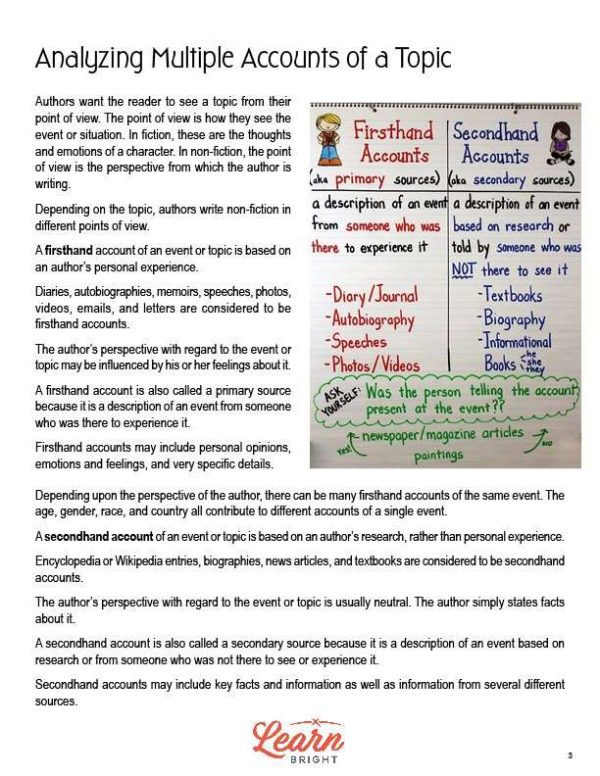 Analyzing Multiple Accounts of a Topic
Authors want the reader to see a topic from their
point of view. The point of view is how they see the
event or situation. In fiction, these are the thoughts
and emotions of a character. In non-fiction, the point
of view is the perspective from which the author is
writing.
Depending on the topic, authors write non-fiction in
different points of view.
A firsthand account of an event or topic is based on
an author's personal experience.
Diaries, autobiographies, memoirs, speeches, photos,
videos, emails, and letters are considered to be
firsthand accounts.
The author's perspective with regard to the event or
topic may be influenced by his or her feelings about it.
A firsthand account is also called a primary source
because it is a description of an event from someone
who was there to experience it.
Firsthand accounts may include personal opinions,
emotions and feelings, and very specific details.
Firsthand
Accounts
(aka primary sources)
a description of an event
from someone who was
there to experience it
-Diary/Journal
-Autobiography
-Speeches
-Photos/Videos
Secondhand
Accounts
(aka secondary sources)
a description of an event
based on research or
told by someone who was
NOT there to see it
-Textbooks
-Biography
-Informational
Books
he
she
they
ASK
YOURSELF:
Was the person telling the account
present at the event??
yes!
newspaper/magazine articles
NO
paintings
Depending upon the perspective of the author, there can be many firsthand accounts of the same event. The
age, gender, race, and country all contribute to different accounts of a single event.
A secondhand account of an event or topic is based on an author's research, rather than personal experience.
Encyclopedia or Wikipedia entries, biographies, news articles, and textbooks are considered to be secondhand
accounts.
The author's perspective with regard to the event or topic is usually neutral. The author simply states facts
about it.
A secondhand account is also called a secondary source because it is a description of an event based on
research or from someone who was not there to see or experience it.
Secondhand accounts may include key facts and information as well as information from several different
sources.
Learn
BRIGHT
3